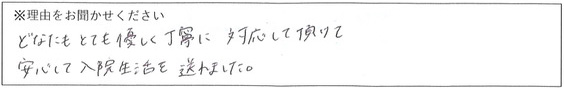 ※理由をお聞かせください
どなたもとても優しく丁寧に 対応して頂けて
安心して入院生活を送れました。